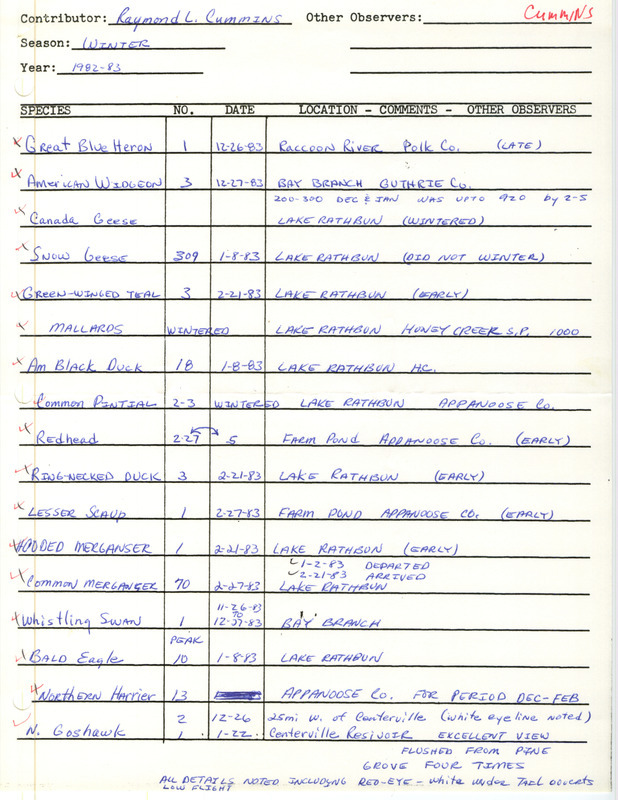 Contributor: Raymond L. Cummins Other Observers: Cummins
Season: Winter
Year: 1982-83
SPECIES NO. DATE LOCATION - COMMENTS - OTHER OBSERVERS
Great Blue Heron 1 12-26-83 Raccoon River Polk Co. (LATE)
American Widgeon 3 12-27-83 Bay Branch Guthrie Co.
200-300 Dec & Jan was upto 920 by 2-5
Canada Geese Lake Rathbun (Wintered)
Snow Geese 309 1-8-83 Lake Rathbun (Did not winter)
Green-winged Teal 3 2-21-83 Lake Rathbun (Early)
Mallards Wintered Lake Rathbun Honey Creek S.P. 1000
Am Black Duck 18 1-8-83 Lake Rathbun H.C.
Common Pintial 2-3 Wintered Lake Rathbun Appanoose Co.
Redhead 2-27 5 Farm Pond Appanoose Co. (Early)
Ring-necked Duck 3 2-21-83 Lake Rathbun (Early)
Lesser Scaup 1 2-27-83 Farm Pond Appanoose Co. (Early)
Hooded Merganser 1 2-21-83 Lake Rathbun (Early)
1-2-83 Departed
2-21-83 Arrived
Common Merganger 70 2-27-83 Lake Rathbun
11-26-83
to
Whistling Swan 1 12-27-83 Bay Branch
Peak
Bald Eagle 10 1-8-83 Lake Rathbun
Northern Harrier 13 Appanoose Co. for period Dec-Feb
2 12-26 25mi w. of Centerville (white eyeline noted)
N. Goshawk 1 1-22 Centerville Resivoir Excellent view
Flushed from pine
grove four times
All details noted including red-eye - white under tail coverts
low flight